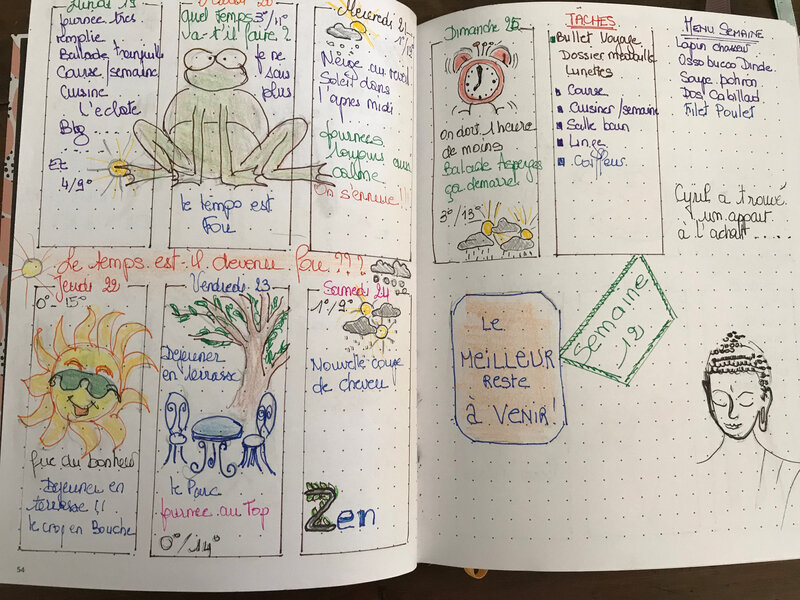 Lundi 19
Journée très
remplie
Ballade tranquille
Course/semaine
Cuisine
L'éclate
Blog
Et
4/9°
Mardi 20
Quel temps 3°/11°
va-t'il faire ?
je ne
sais
plus
le temps est
Fou
Mercredi 21
Neige au réveil
Soleil dans
l'après midi
Journées
toujours aussi
calme
On s'ennuie !!!
Le temps est-il devenu fou ???
Jeudi 22
0° - 15°
que du bonheur
Déjeuner en
terrasse !!
le crop en Bouche
Vendredi 23
Déjeuner
en terrasse
le Parc
journée au Top
0°/14°
Samedi 24
1°/9°
Nouvelle coupe
de cheveu
Zen
54
Dimanche 25
on dort 1 heure
de moins
Balade Asperges
ça démarre !
3°/13°
TACHES
Bullet Voyage
Dossier
Lunettes
Course
Cuisiner/semaine
Salle bain
Linge
Coiffeur
MENU SEMAINE
Lapin chasseur
Osso bucco Dinde
Soupe potiron
Dos Cabillaud
Filet Poulet
Cyril a trouvé
un appart
à l'achat.....
Semaine
12
Le
MEILLEUR
RESTE
à VENIR !